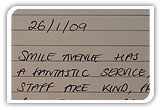 26/1/09
SMILE AVENUE HAS
A FANTASTIC SERVICE,
STAFF ARE KIND,